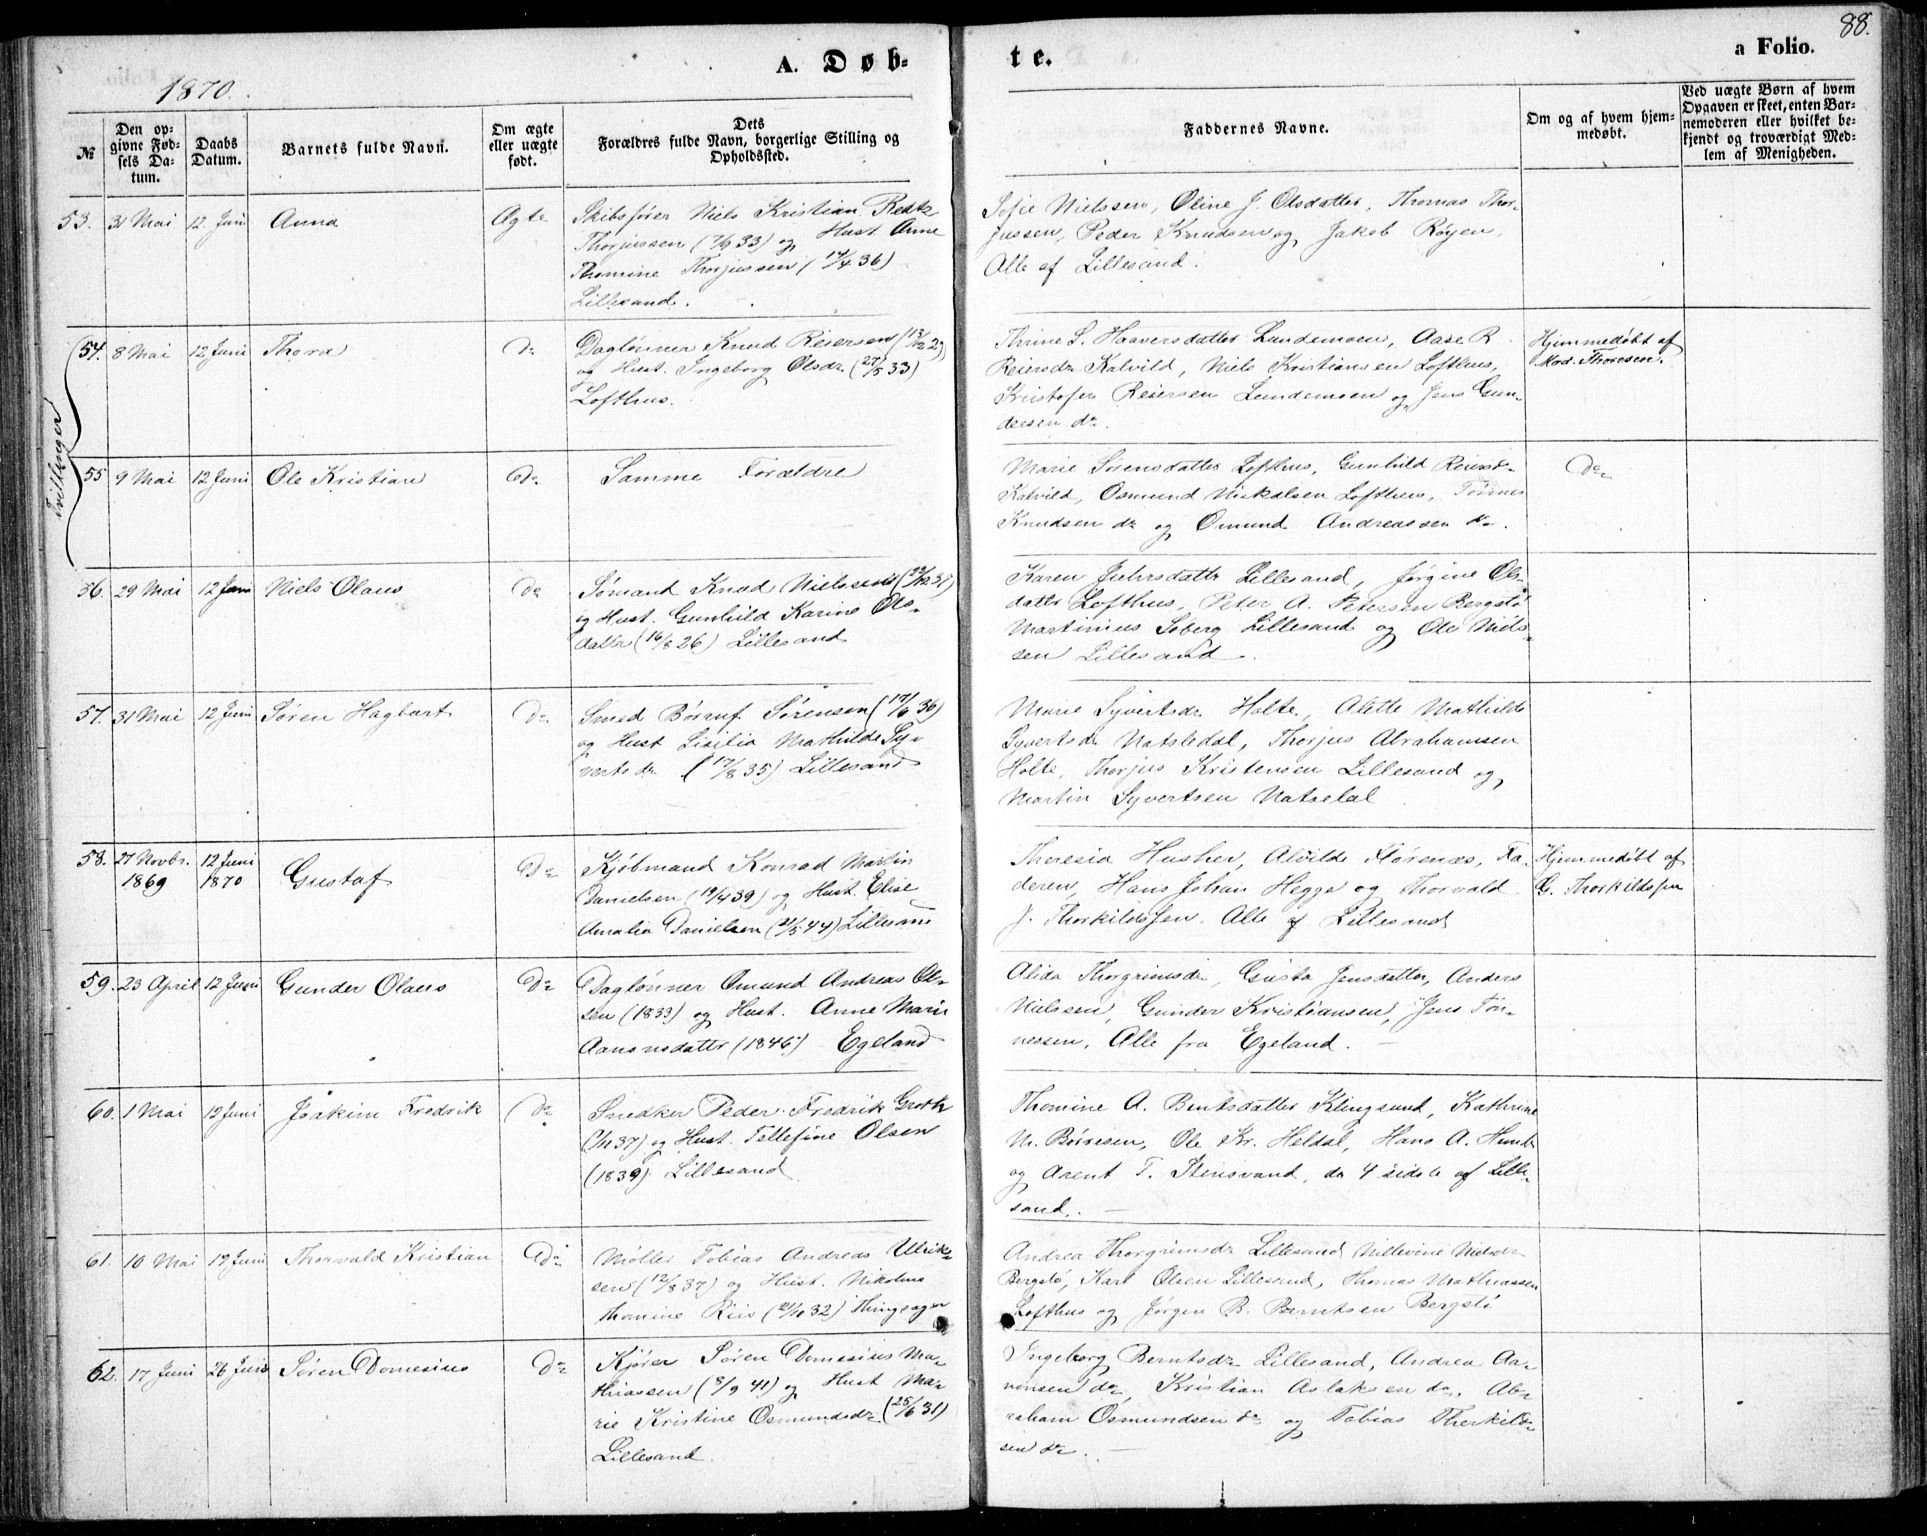 88.
A. Døb-
te.
a Folio.
1870.
№
Den op-
givne Fød-
sels Da-
tum.
Daabs
Datum.
Barnets fulde Navn.
Om ægte
eller uægte
født.
Dets
Forældres fulde Navn, borgerlige Stilling og
Opholdssted.
Faddernes Navne.
Om og af hvem hjem-
medøbt.
Ved uægte Børn af hvem
Opgaven er skeet, enten Bar-
nemoderen eller hvilket be-
kjendt og troværdigt Med-
lem af Menigheden.
53. 31 Mai 12 Juni Anna Ægte
Skibsfører Niels Kristian
Thorjussen (7/9 33) og Hust. Anne
Thomine Thorjussen (14/4 36)
Lillesand.
Sofie Nielssen, Oline J. Olsdatter, Thomas Thor-
jussen, Peder Knudsen og Jakob Røyen,
Alle af Lillesand.
Tvillinger
54. 8 Mai 12 Juni Thora do
Daglønner Knud Reiersen (13/12 29)
og Hust. Ingeborg Olsdr (27/5 33)
Lofthus.
Thrine S. Haaversdatter Lundemoen, Aase R.
Reiersdr Kalvild, Niels Kristiansen Lofthus,
Kristofer Reiersen Lundemoen og Jens Gun-
dersen do.
Hjemmedøbt af
Mad. Thoresen.
55 9 Mai 12 Juni Ole Kristian do
Samme Forældre
Marie Sørensdatter Lofthus, Gunhild Reiersd-
Kalvild, Osmund Nickalsen Lofthus, Tønnes
Knudsen do og Omund Andreassen do.
do
56. 29 Mai 12 Juni Niels Olaus do
Sømand Knud Nielssen (22/12 37)
og Hust. Gunhild Karine Ols-
datter (16/8 26) Lillesand
Karen Juhrsdatter Lillesand, Jørgine Ols-
datter Lofthus, Peter A. Petersen Bergstø
Martinius Soberg Lillesand og Ole Niels-
sen Lillesand.
57. 31 Mai 12 Juni Søren Hagbart do
Smed Børruf Sørensen (19/9 36)
og Hust Sisilia Mathilde Sy-
vertsdr (17/8 35) Lillesand
Marie Syvertsdr Holte, Alette Mathilde
Syvertsdr Natsledal, Thorjus Abrahamsen
Holte, Thorjus Kristensen Lillesand og
Martin Syvertsen Natseldal
58. 27 Novbr. 12 Juni
1869 1870 Gustaf do
Kjøbmand Konrad Martin
Danielsen (19/4 39) og Hust. Elise
Amalia Danielsen (21/5 44) Lillesand
Theresia Husher, Alvilde Størenæs, Fa-
deren, Hans Johan Hegge og Thorvald
J. Thorkildssen. Alle af Lillesand
Hjemmedøbt af
G. Thorkildssen
59. 23 April 12 Juni Gunder Olaus do
Daglønner Omund Andreas Ol-
sen (1833) og Hust. Anne Marie
Aanonsdatter (1846) Egeland
Alida Thorgrimsdr, Gusta Jensdatter, Anders
Nielssen, Gunder Kristiansen, Jens Tøn-
nessen, Alle fra Egeland.
60. 1 Mai 12 Juni Joakim Fredrik do
Snedker Peder Fredrik Groth
(1/11 37) og Hust. Tellefine Olsen
(1839) Lillesand
Thomine A. Berntsdatter Klingsund, Kathrine
M. Børresen, Ole Kr. Heldal, Hans A. Hund
og Arent T. Stensvand, de 4 sidste af Lille-
sand.
61. 10 Mai 19 Juni Thorvald Kristian do
Møller Tobias Andreas Ullrik-
sen (12/8 37) og Hust. Nikoline
Thomine Riis (21/10 32) Thingsager
Andrea Thorgrimsdr Lillesand, Nielsdr
Bergstø, Karl Olsen Lillesand, Thomas Mathiassen
Lofthus og Jørgen B. Berntsen Bergstø
62. 17 Juni 26 Juni Søren Domesius do
Kjører Søren Domesius Ma-
thiassen (8/9 41) og Hust Ma-
rie Kristine Osmundsdr (25/6 31)
Lillesand.
Ingeborg Berntsdr Lillesand, Andrea Aa-
nonsen do, Kristian Aslaksen do, Ab-
raham Osmundsen do og Tobias Therkild-
sen do.